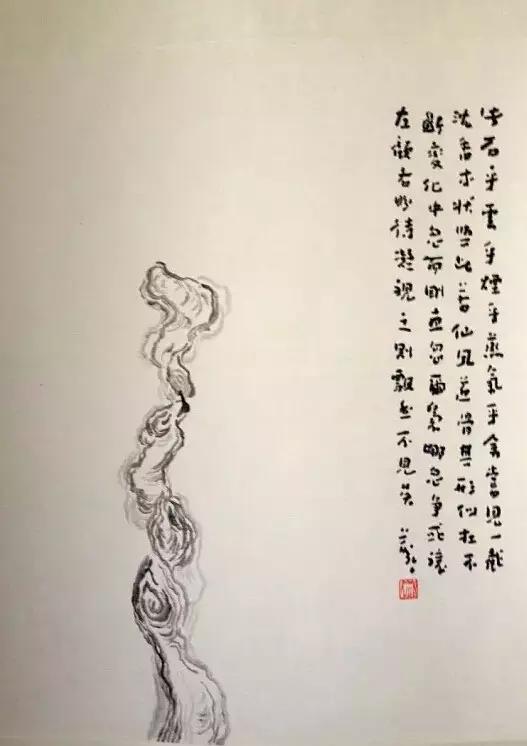 石乎雲乎煙乎蒸氣乎余嘗見一截
沈香木狀此若仙風道骨其形似在不
斷變化中忽而剛直忽爾柔娜忽爭或讓
左顧右盼待凝視之則飄然不見矣